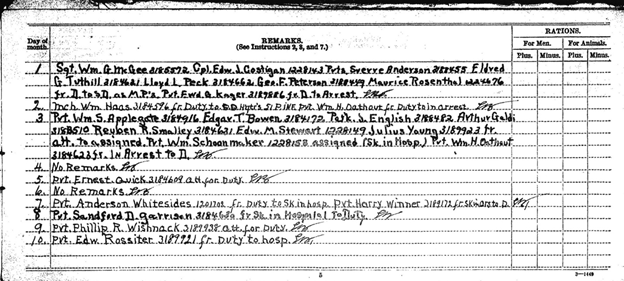 REMARKS.
(See Instructions 2, 3, and 7.)
RATIONS.
Day of month.
For Men.
For Animals.
Plus. Minus. Plus. Minus.
1 Sgt. Wm. G. McGee 3185592 Cpl. Edw. J. Costigan 1228143 Pvts. Sverre Anderson 3188455 Eldred
G. Tuthill 3184621 Lloyd L. Peck 3184662 Geo. F. Peterson 3188449 Maurice Rosenthal 1224676
fr. D. to S.D. as M.P's. Pvt. Ewd. 3189886 fr. D. to Arrest.
2 Mch. Wm. Haas 3184596 fr. Duty to S.D. Pvt. Wm. H. Oathout fr. Duty to in arrest.
3 Pvt. Wm. S. Applegate 3184916 Edgar T. Bowen 3184172 Patk. J. English 3188482 Arthur Galdi
3188510 Reuben R. Smalley 3184631 Edw. M. Stewart 1228149 Julius Young 3189923 fr.
att. to assigned. Pvt. Wm. Schoonmaker 1228158 assigned (Sk. in Hosp.) Pvt. Wm. H. Oathout
3184623 fr. In Arrest to D.
4 No Remarks.
5 Pvt. Ernest Quick 3184609 att. for Duty.
6 No Remarks.
7 Pvt. Anderson Whitesides 1201702 fr. Duty to Sk in hosp. Pvt. Harry Winner 3189172 fr. Sk to D.
8 Pvt. Sandford D. Garrison 3184686 fr Sk. in Hospital To Duty
9 Pvt. Phillip R. Wishnack 3189938 att. for Duty.
10 Pvt. Edw. Rossiter 3189921 fr. Duty to hosp.
5